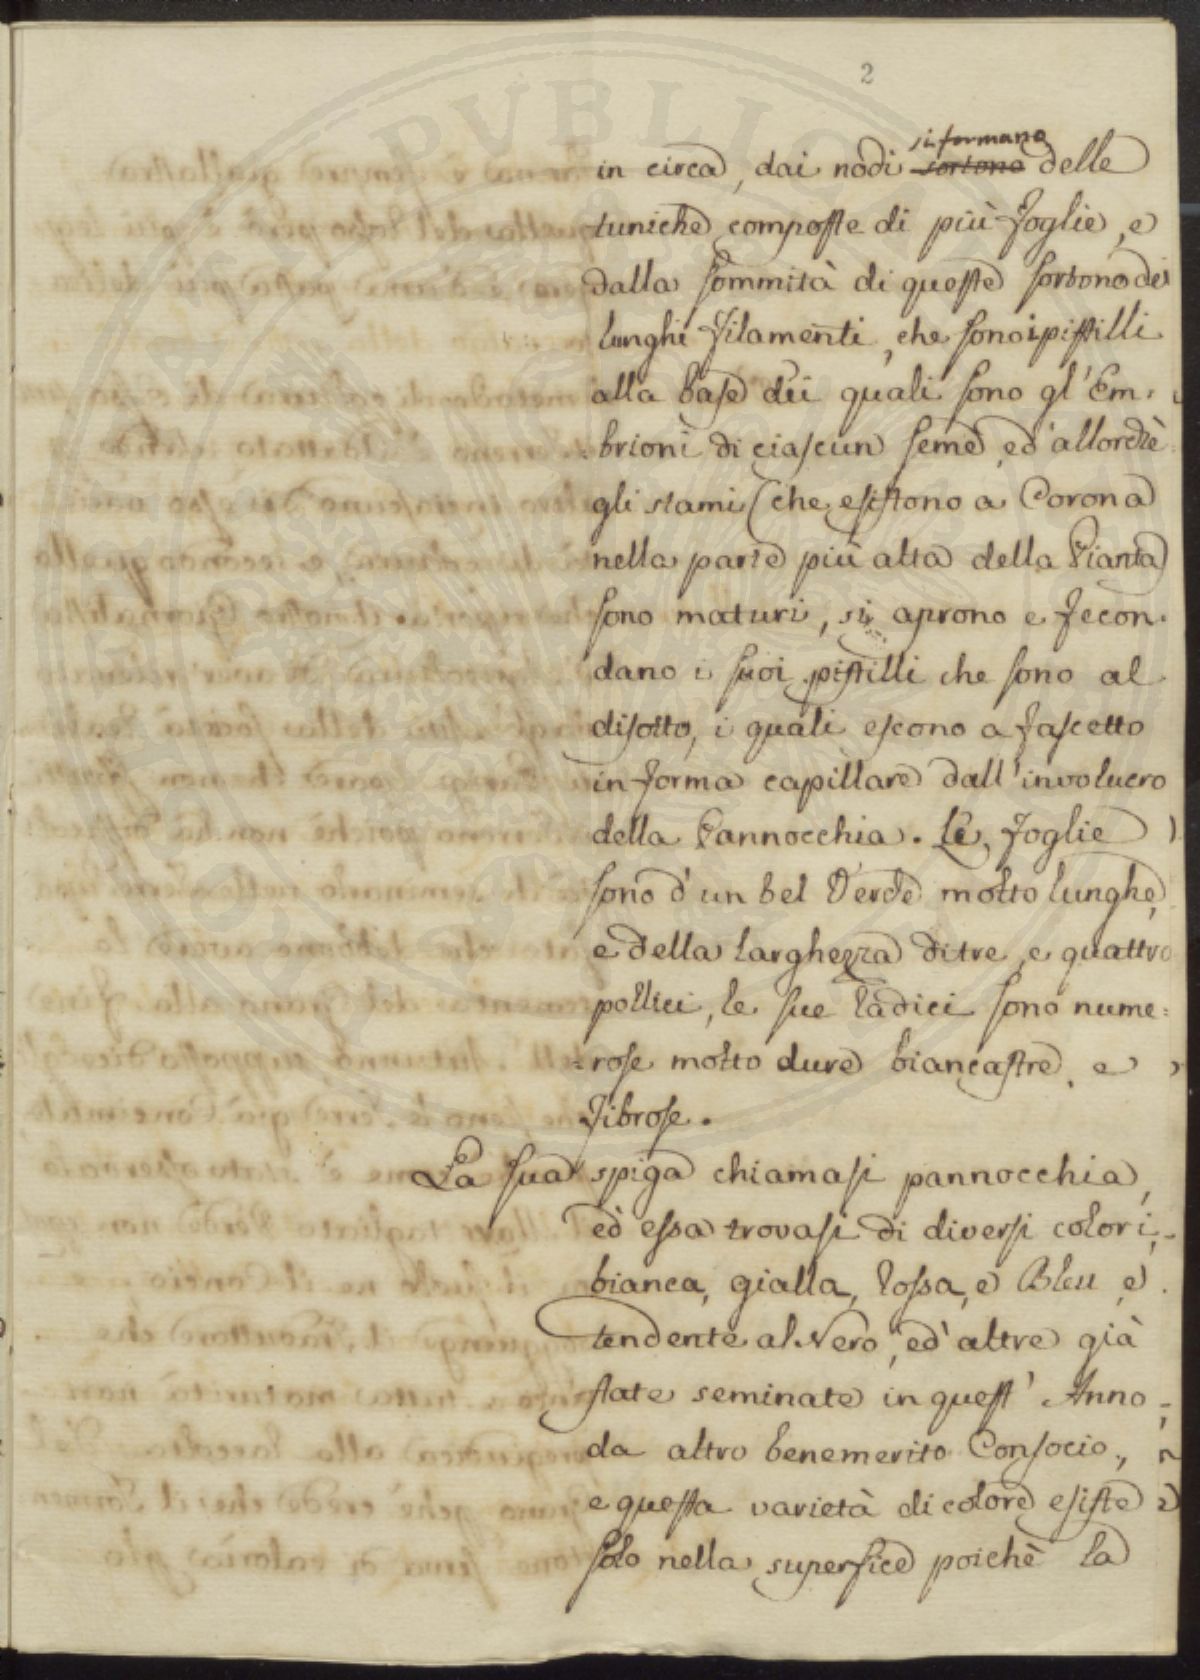 2
si formano
in circa, dai nodi sortono delle
tuniche composte di più foglie, e
dalla sommità di queste sortono dei
lunghi filamenti, che sono i pistilli
alla base dei quali sono gl'Em-
brioni di ciascun seme, ed allorchè
gli stami (che esistono a Corona
nella parte più alta della Pianta)
sono maturi, si aprono e fecon-
dano i suoi pistilli che sono al
disotto, i quali escono a fascetto
in forma capillare dall'involucro
della Pannocchia. Le foglie
sono d'un bel Verde molto lunghe,
e della larghezza di tre, e quattro
pollici, le sue radici sono nume=
=rose molto dure biancastre, e
fibrose.
La sua spiga chiamasi pannocchia,
ed essa trovasi di diversi colori,
bianca, gialla, rossa, e Bleu, e
tendente al Nero, ed altre già
state seminate in quest'Anno
da altro benemerito Consocio,
e questa varietà di colore esiste
solo nella superfice poichè la